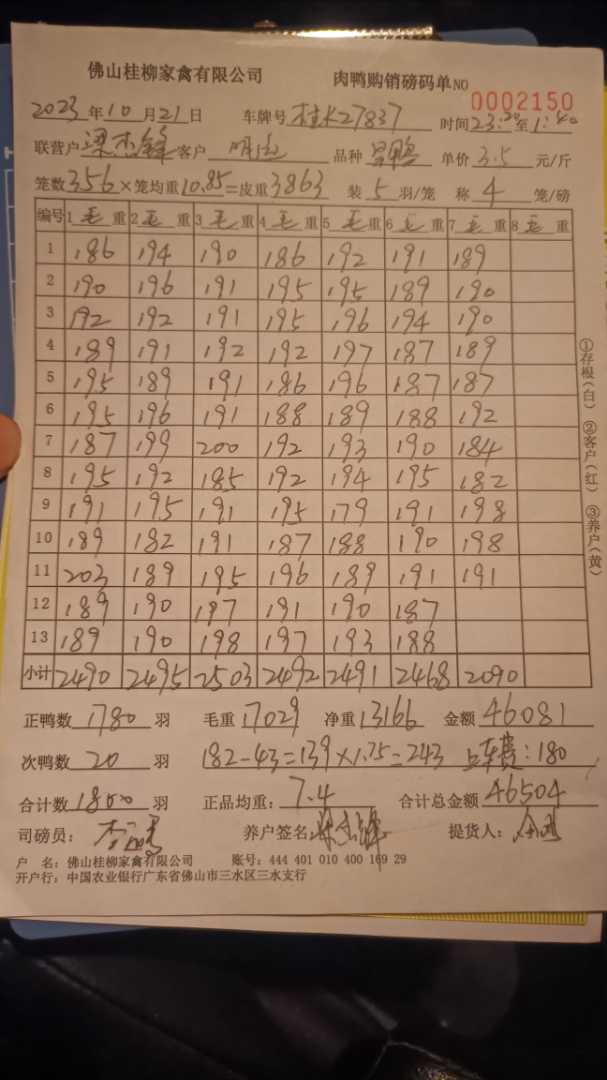 佛山桂柳家禽有限公司 肉鸭购销磅码单NO 0002150
2023年10月21日 车牌号 桂K27837 时间23:20至1:40
联营户 梁杰锋 客户 品种 单价 3.5 元/斤
笼数356×笼均重10.85=皮重3863 装5羽/笼 称4笼/磅
编号 1毛重 2毛重 3毛重 4毛重 5毛重 6毛重 7毛重 8毛重
1 186 194 190 186 192 191 189
2 190 196 191 195 195 189 190
3 192 192 191 195 196 194 190
4 189 191 192 192 197 187 189
5 195 189 191 186 196 187 187
6 195 196 191 188 189 188 192
7 187 199 200 192 193 190 184
8 195 192 185 192 194 195 182
9 191 195 191 195 179 191 198
10 189 182 191 187 188 190 198
11 203 189 195 196 189 191 191
12 189 190 197 191 190 187
13 189 190 198 197 193 188
小计 2490 2495 2503 2492 2491 2468 2090
①存根(白) ②客户(红) ③养户(黄)
正鸭数 1780 羽 毛重 17029 净重 13166 金额 46081
次鸭数 20 羽 182-43=139×1.75=243 上车费:180
合计数 1800 羽 正品均重: 7.4 合计总金额 46504
司磅员: 养户签名: 梁杰锋 提货人:
户 名: 佛山桂柳家禽有限公司 账号: 444 401 010 400 169 29
开户行: 中国农业银行广东省佛山市三水区三水支行